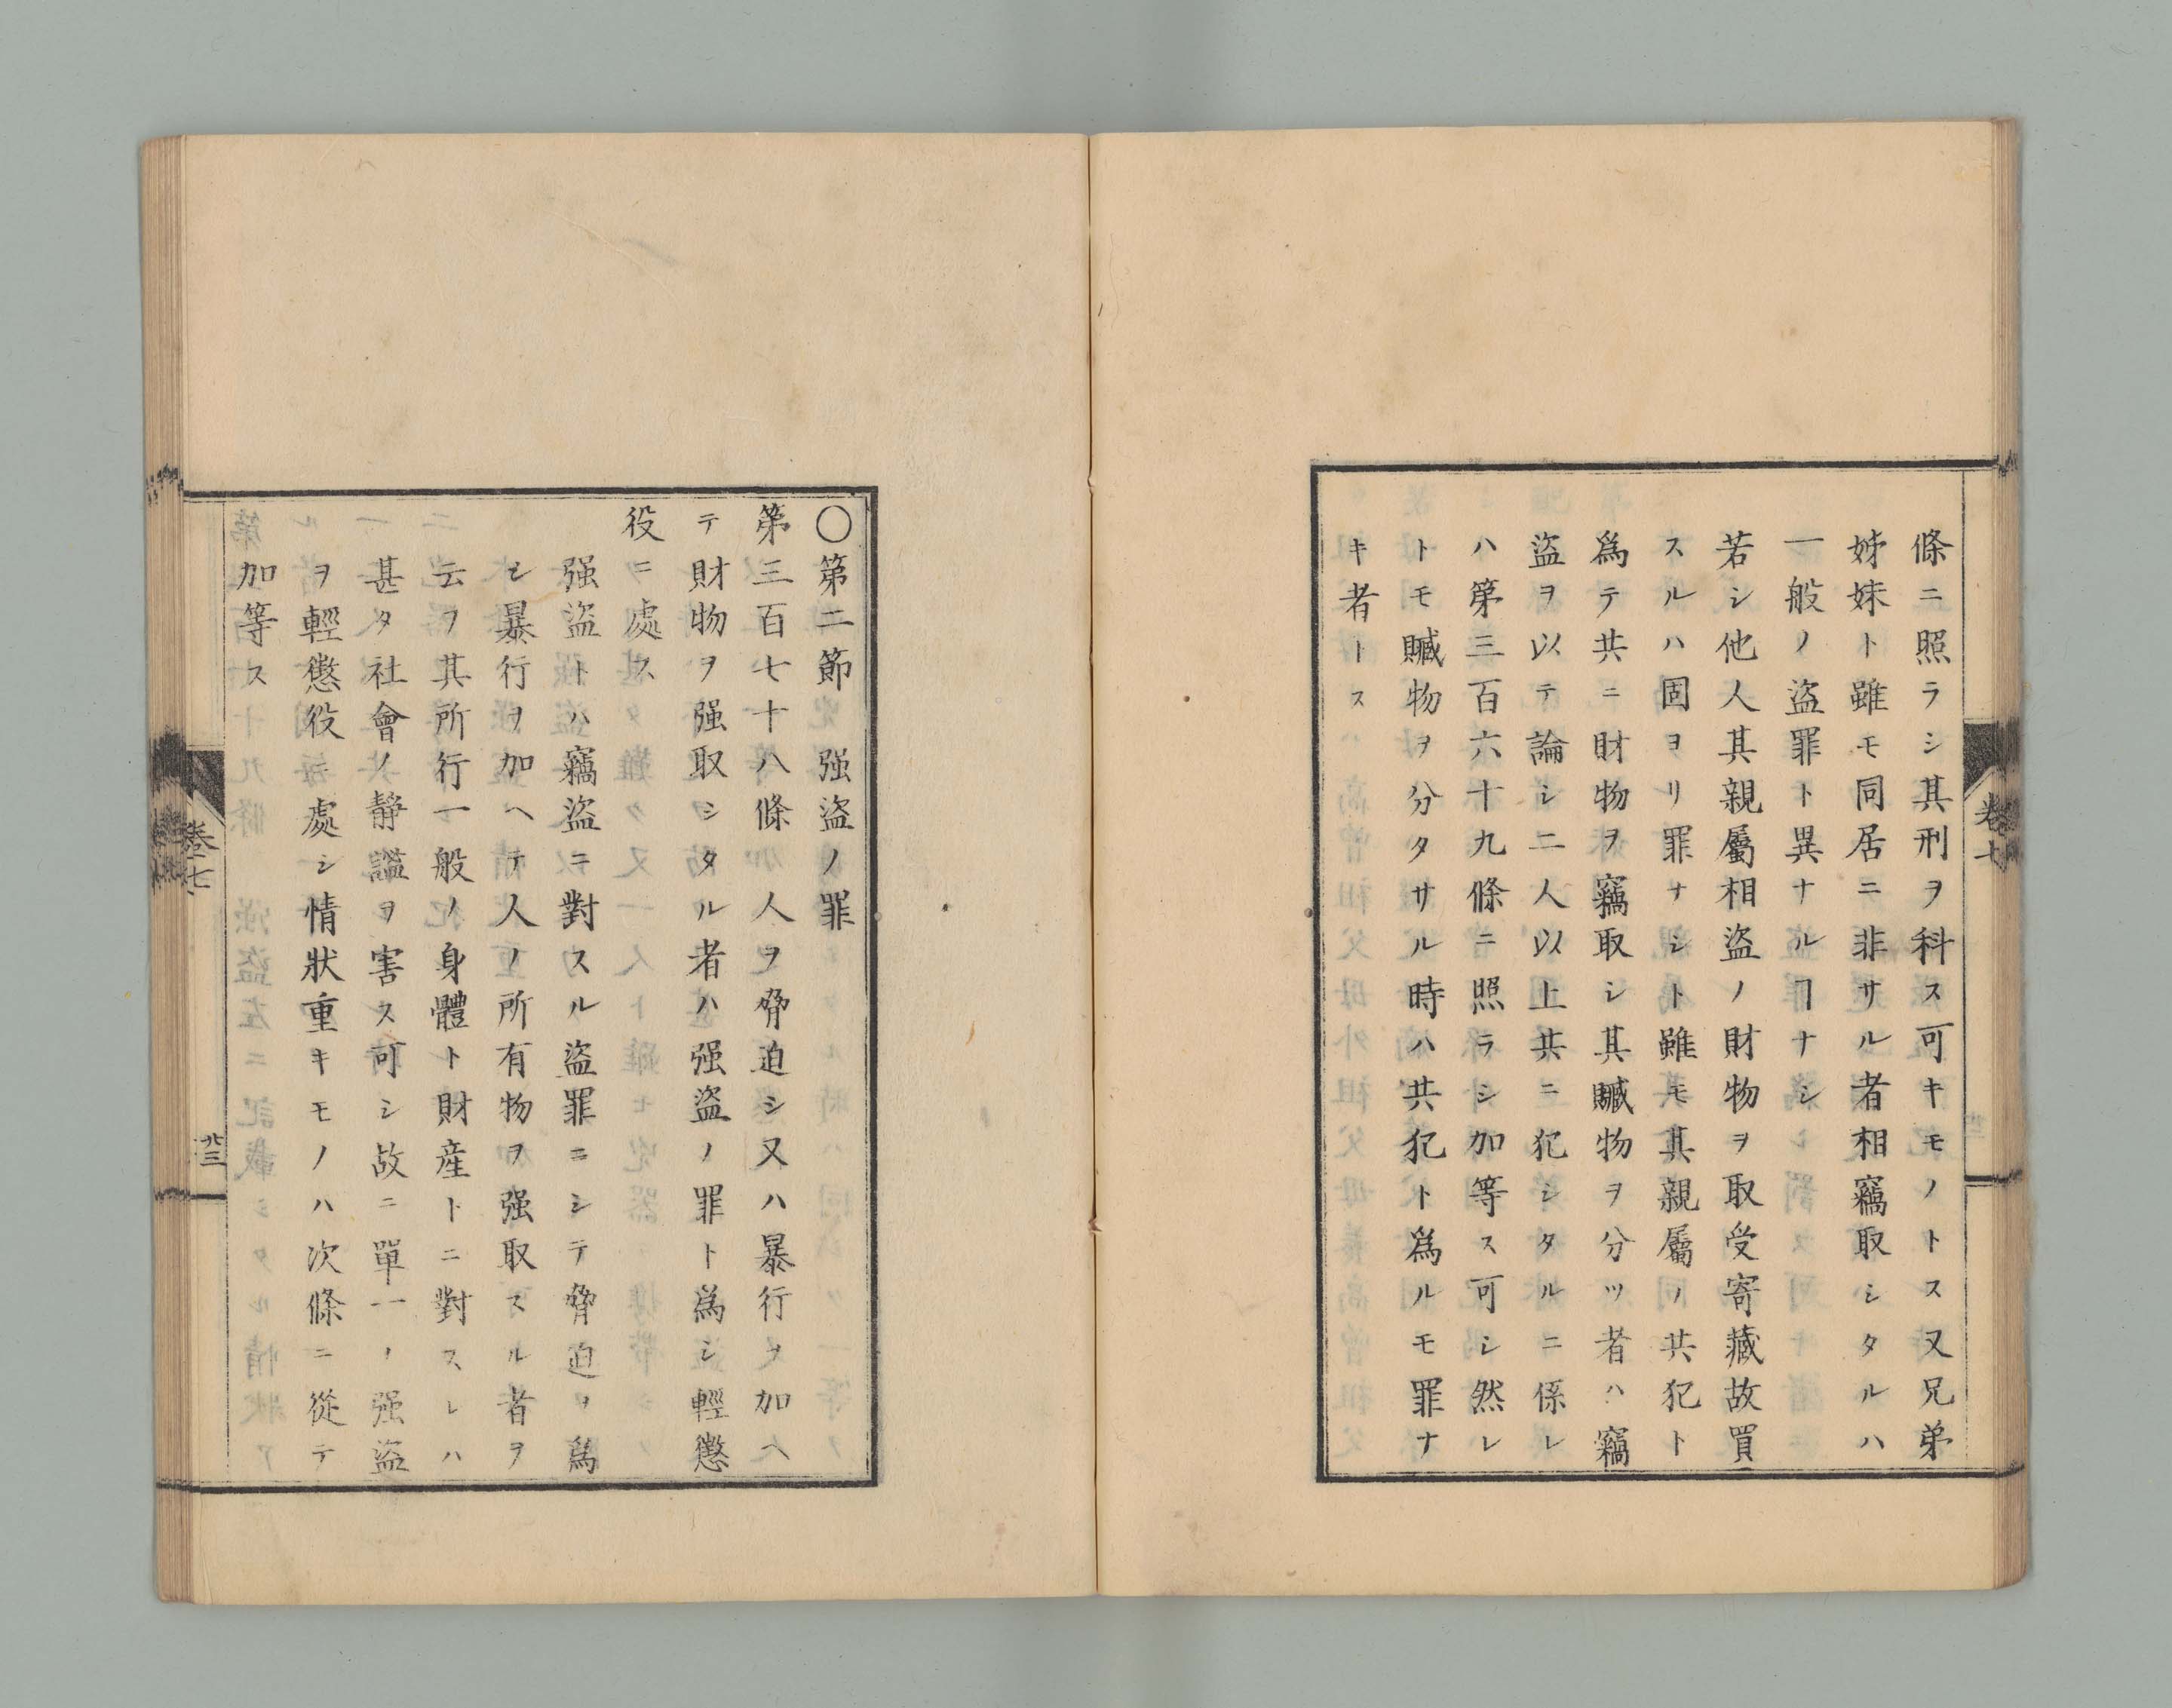 條ニ照ラシ其刑ヲ科ス可キモノトス又兄弟
姊妹ト雖モ同居ニ非サル者相竊取シタルハ
一般ノ盜罪ト異ナルヿナシ
若シ他人其親屬相盜ノ財物ヲ取受寄藏故買
スルハ固ヨリ罪ナシト雖モ其親屬ノ共犯ト
爲テ共ニ財物ヲ竊取シ其贓物ヲ分ツ者ハ竊
盜ヲ以テ論シ二人以上共ニ犯シタルニ係レ
ハ第三百六十九條ニ照ラシ加等ス可シ然レ
トモ贓物ヲ分タサル時ハ共犯ト爲ルモ罪ナ
キ者トス
卷七
〇第二節 强盜ノ罪
第三百七十八條 人ヲ脅迫シ又ハ暴行ヲ加ヘ
テ財物ヲ强取シタル者ハ强盜ノ罪ト爲シ輕懲
役ニ處ス
强盜トハ竊盜ニ對スル盜罪ニシテ脅迫ヲ爲
シ暴行ヲ加ヘテ人ノ所有物ヲ强取スル者ヲ
云フ其所行一般ノ身體ト財産トニ對スレハ
甚タ社會ノ靜謐ヲ害ス可シ故ニ單一ノ强盜
ヲ輕懲役ニ處シ情狀重キモノハ次條ニ從テ
加等ス
卷七
廿三